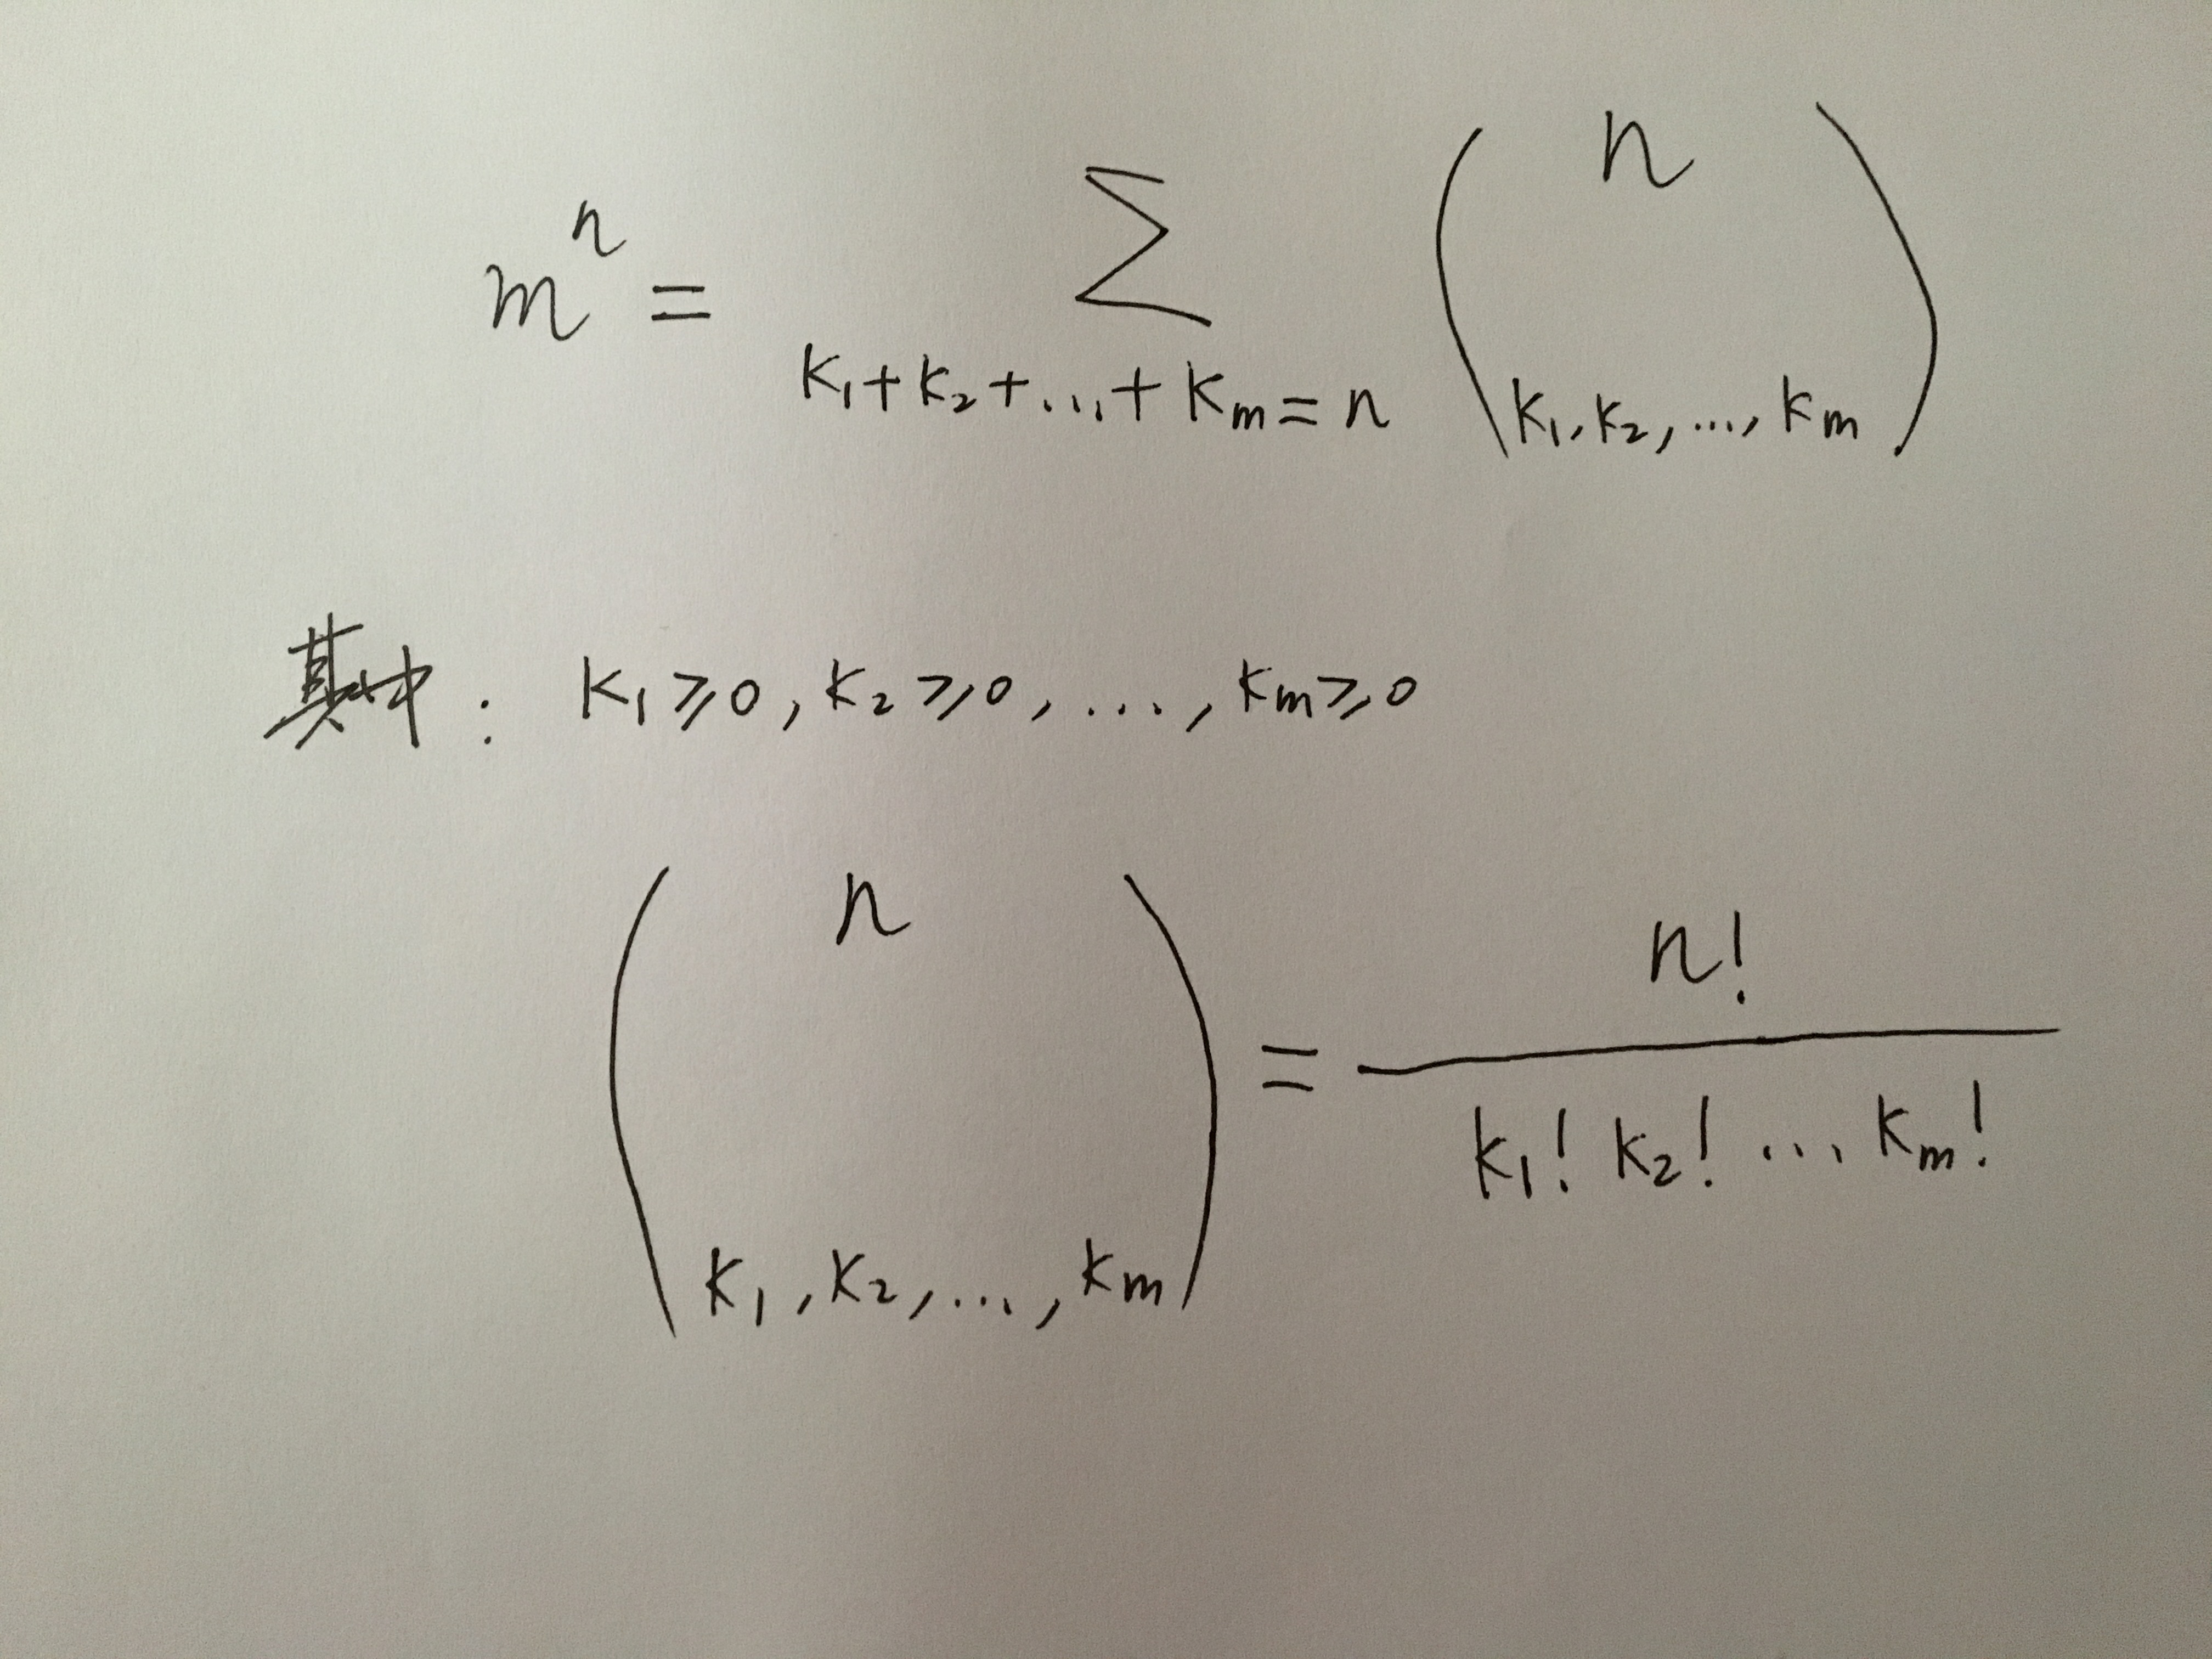 $m^n = \sum_{k_1+k_2+\dots+k_m=n} \binom{n}{k_1,k_2,\dots,k_m}$
其中: $k_1 \geqslant 0, k_2 \geqslant 0, \dots, k_m \geqslant 0$
$\binom{n}{k_1,k_2,\dots,k_m} = \frac{n!}{k_1! k_2! \dots k_m!}$